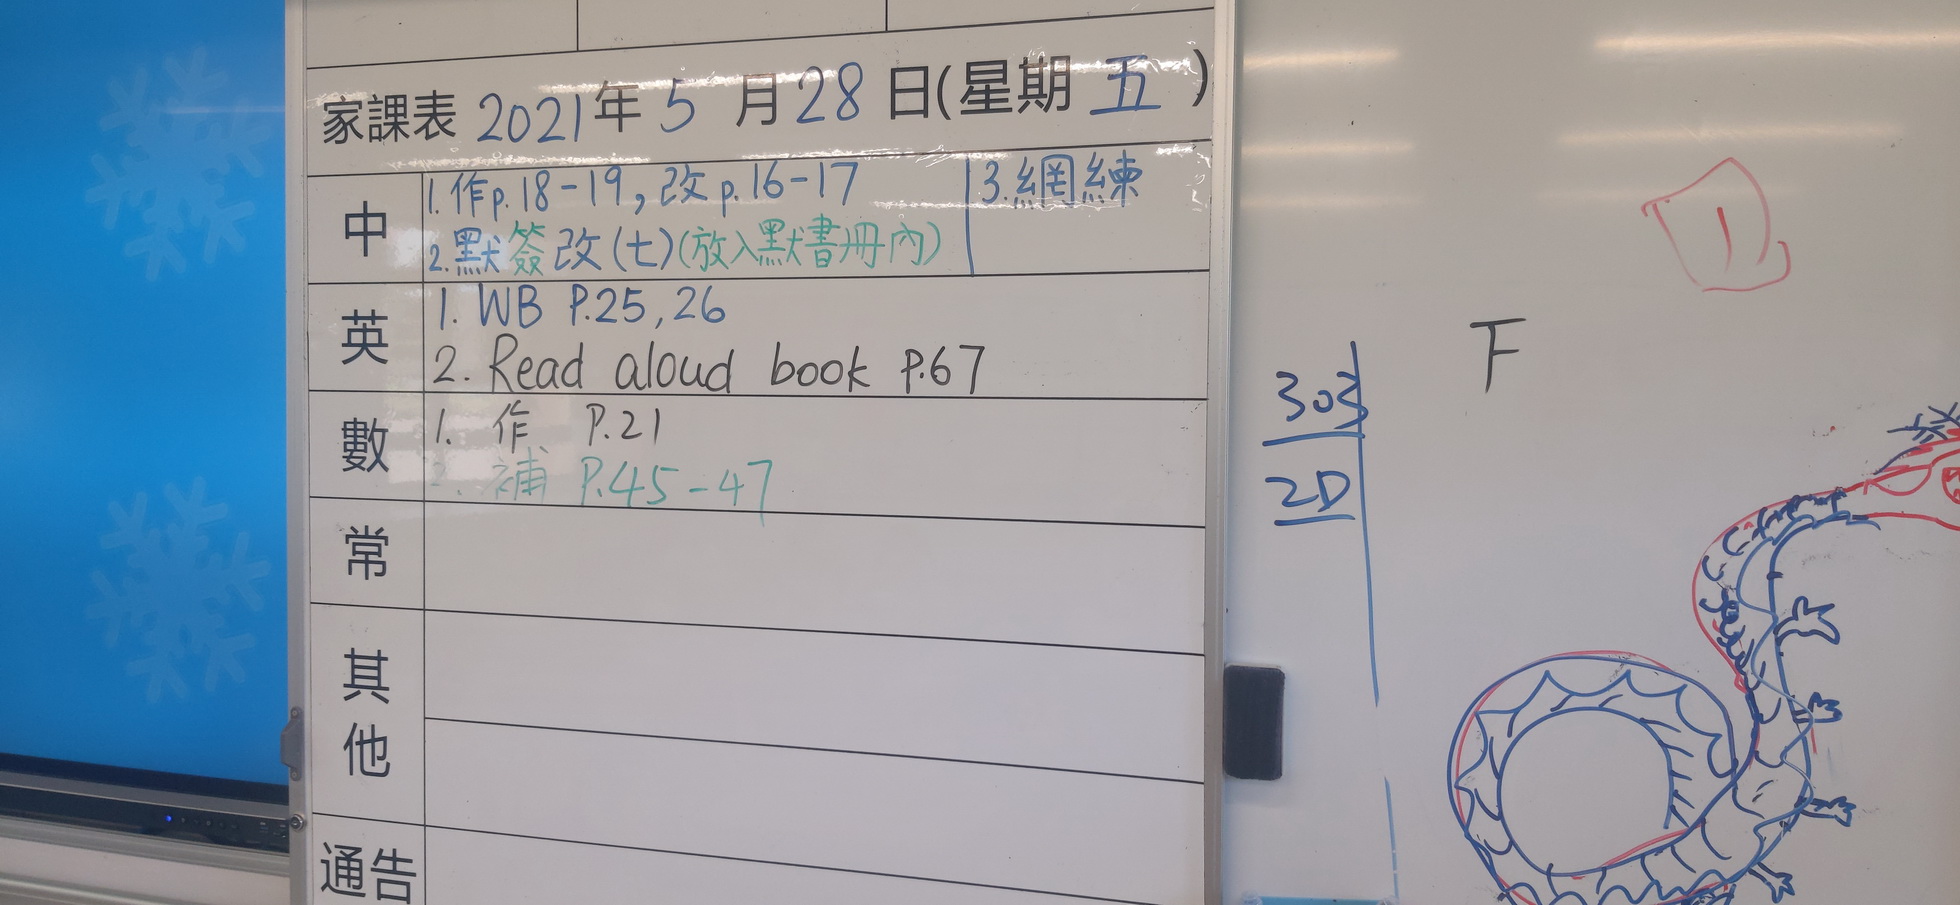 家課表 2021年 5 月 28 日(星期 五 )
中
1. 作p.18-19, 改p.16-17
2. 默簽改(七)(放入默書冊內)
3. 網練
英
1. WB P.25, 26
2. Read aloud book P.67
數
1. 作 P.21
2. 補 P.45-47
常
其他
通告
303
2D
F